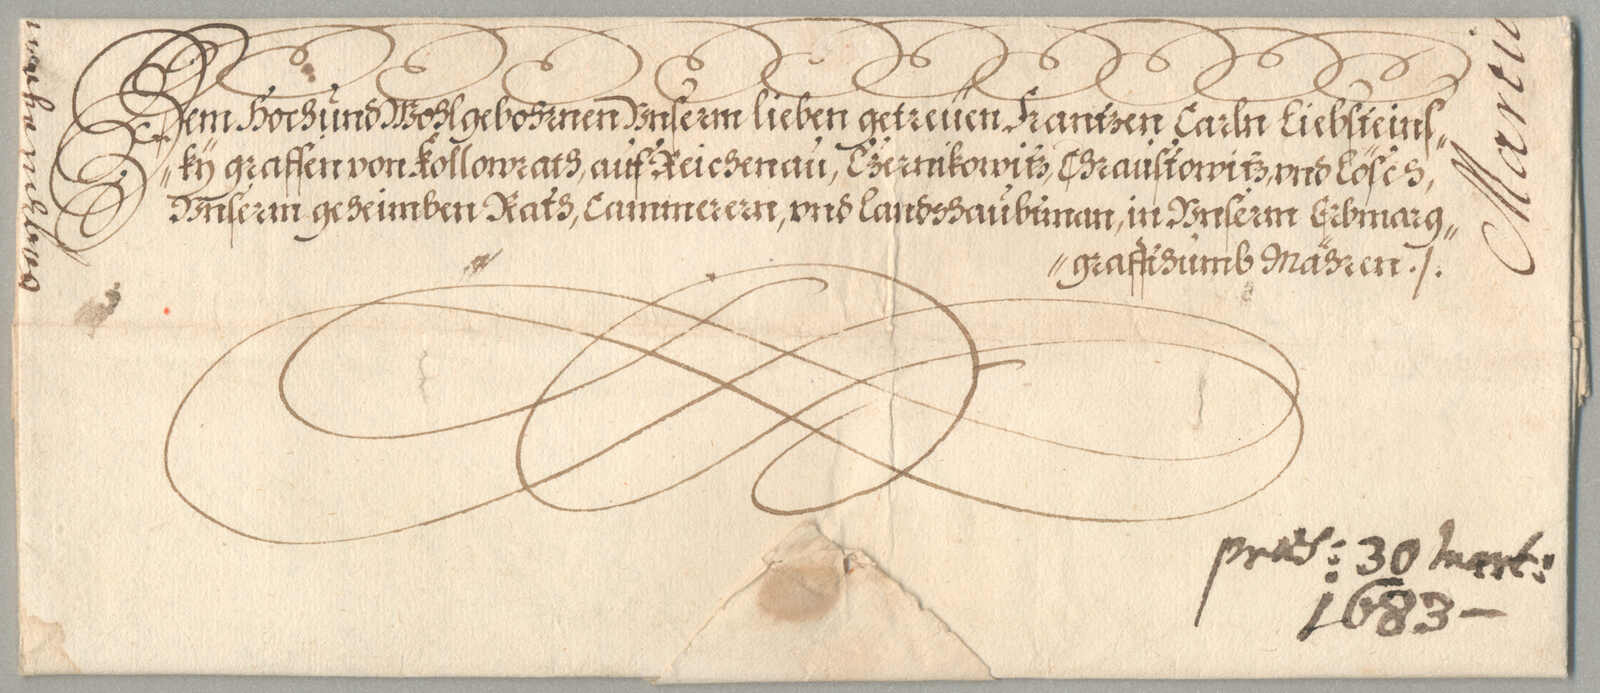 Dem Hoch und Wohlgebohrnen Vnserm lieben getreüen Frantzen Carln Liebsteins„
„kÿ graffen von Kollowrath, auf Reichenau, Czernikowitz, Chraustowitz, vnd Losch,
Vnserm geheimben Rath, Cammerern, vnd landtshaubtman, in Vnserm Erbmarg„
„graffthumb Mähren ./.
præs: 30 Mart:
1683 —